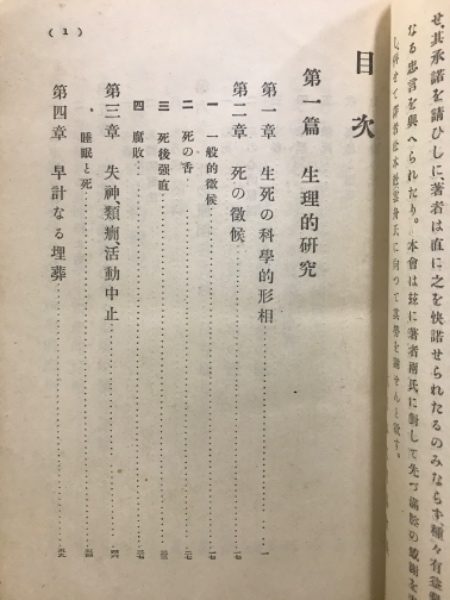 せ、其承諾を請ひしに、著者は直に之を快諾せられたるのみならず、種々有益
なる忠言を與へられたり。本會は玆に著者兩氏に對して先づ滿腔の感謝を
し、併せて譯者
氏に向つて其勞を謝せんと欲す。
目次
第一篇 生理的研究
第一章 生死の科學的形相………一
第二章 死の徵候………一七
一 一般的徵候………一七
二 死の香………二七
三 死後强直………
四 腐敗………三七
第三章 失神、類癇、活動中止………四
睡眠と死………
第四章 早計なる埋葬………
(1)